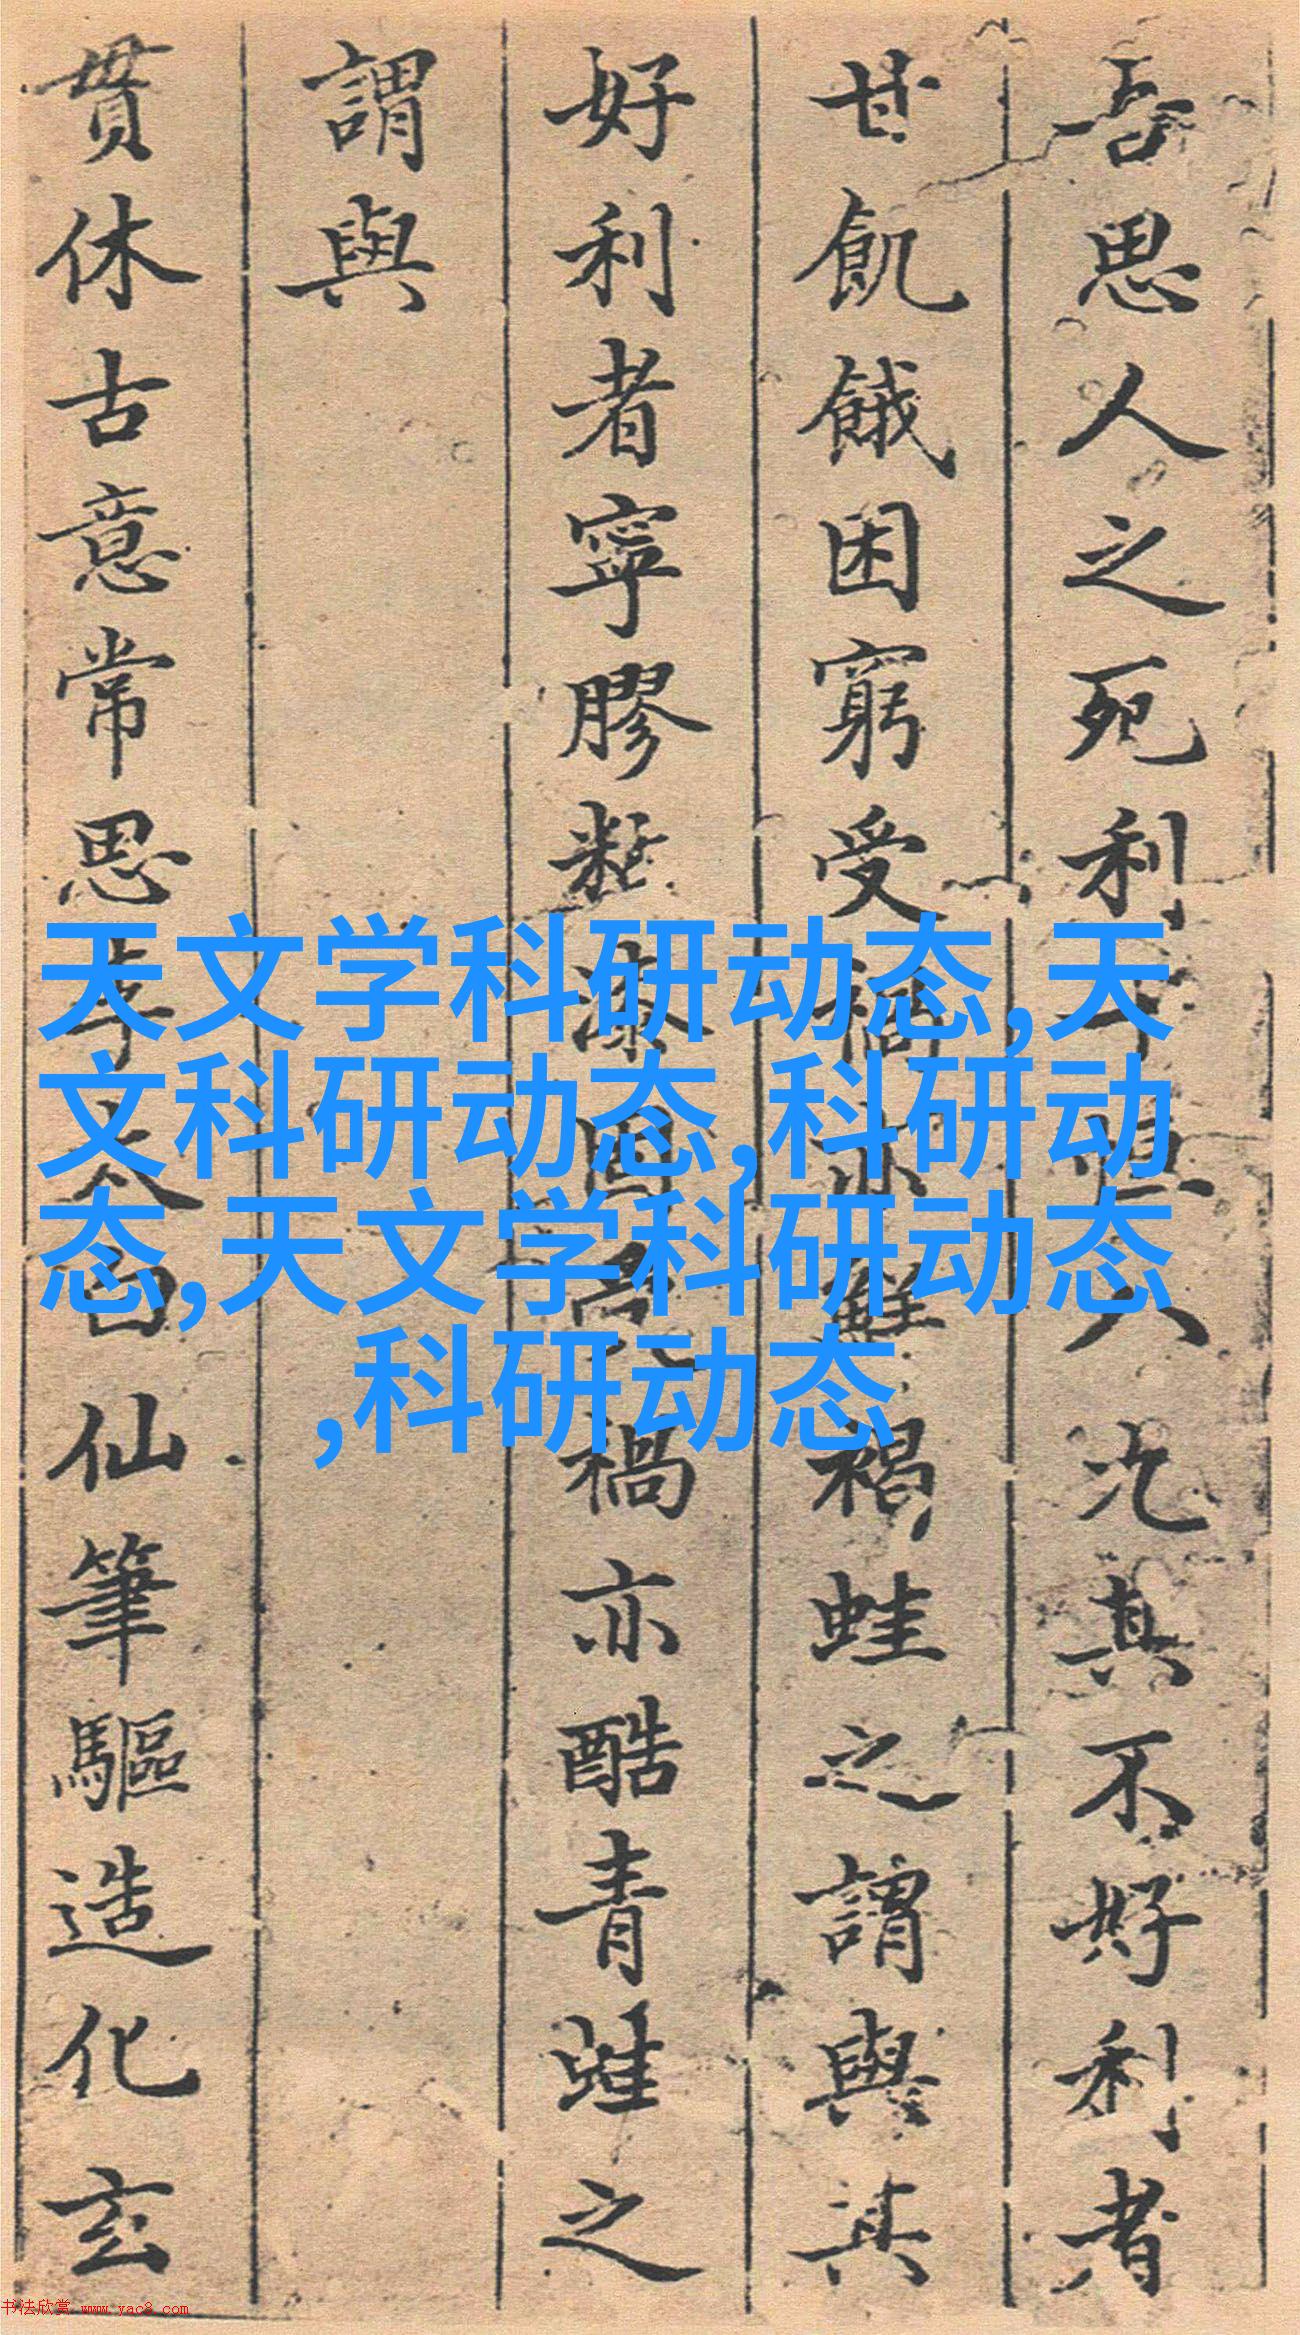 吾思人之死利
况其不好利者
甘飢餓困窮受禍亦難
褐蛙之謂與其
好利者寧膠
漆
禍亦酷青蛙之
謂與
貫休古意常思李太白仙筆驅造化玄
天文学科研动态,天
文科研动态,科研动
态,天文学科研动态
,科研动态
书法欣赏 www.yac8.com